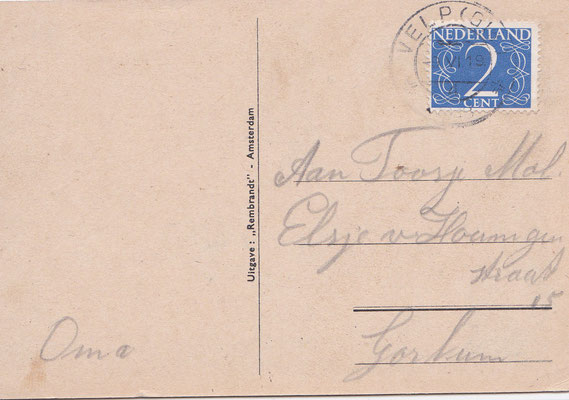 VELP (G)
NEDERLAND
2
CENT
Uitgave: „Rembrandt" - Amsterdam
Aan Toosje Mol.
Elsje v Houningen
straat
15
Gorkum
Oma